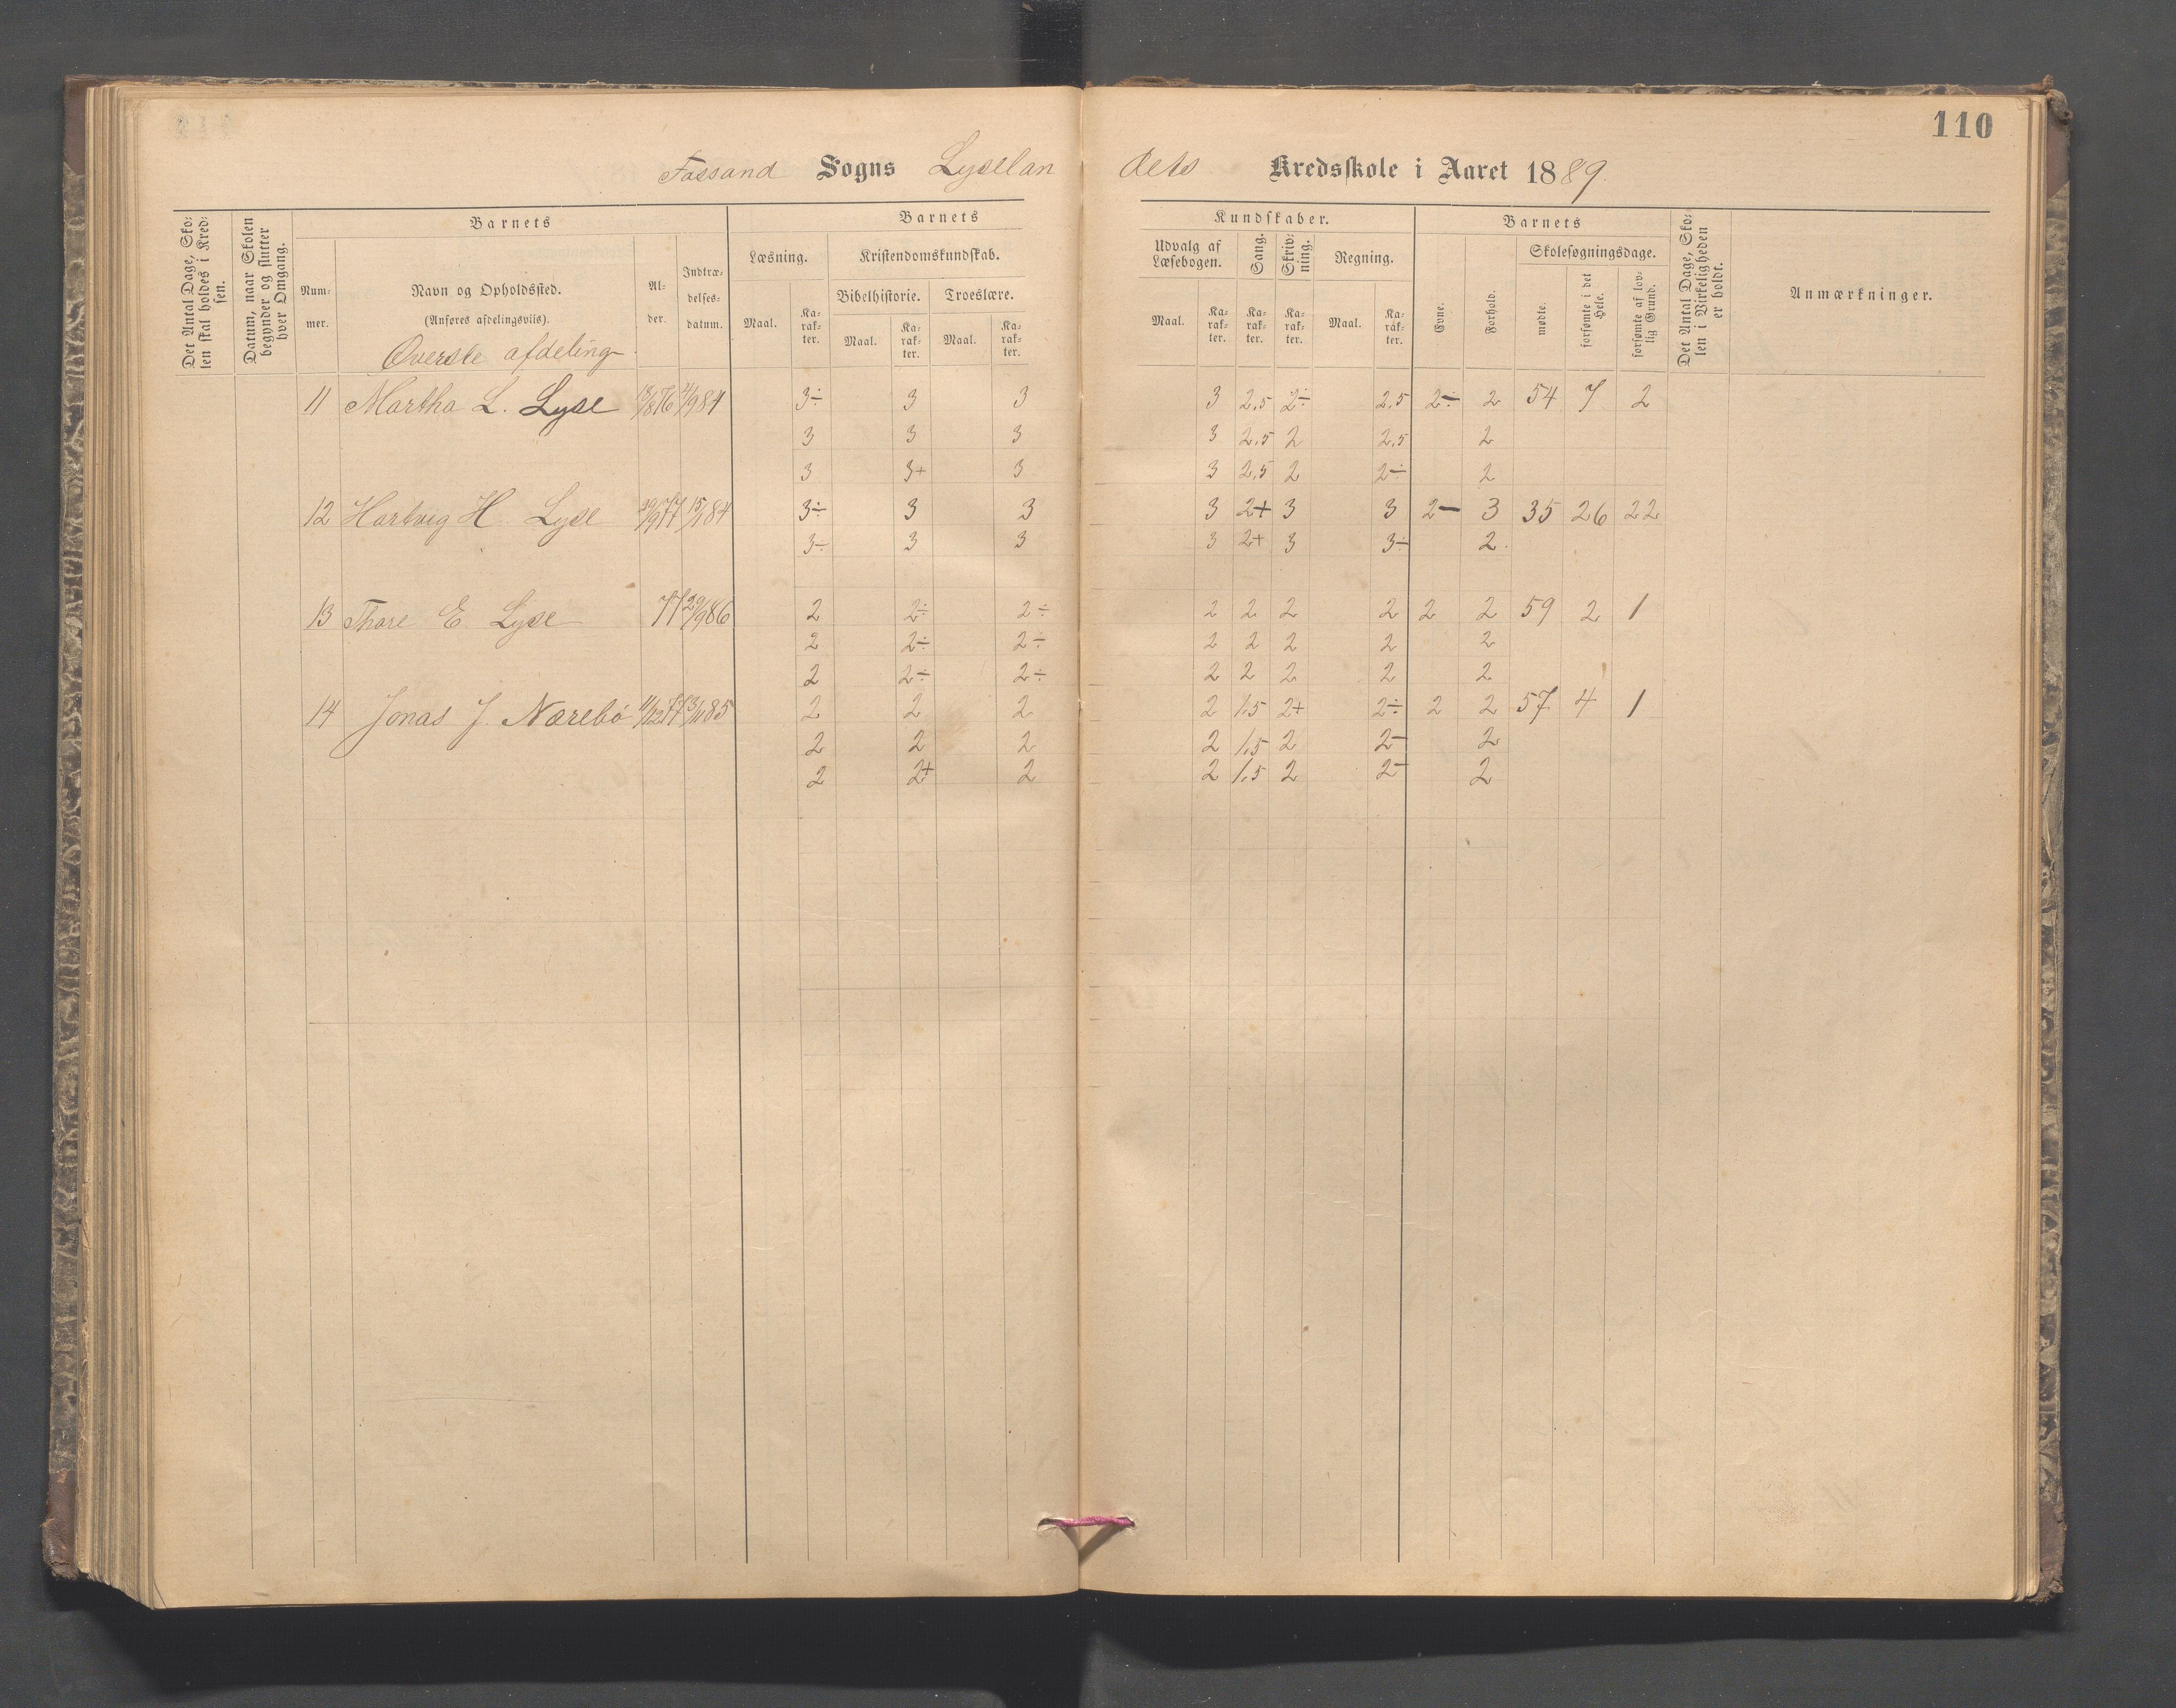 110
Fossand Sogns Lyselan dets Kredsskole i Aaret 1889.
Det Antal Dage, Skolen skal holdes i Kredsen.
Datum, naar Skolen begynder og slutter hver Omgang.
Barnets
Nummer.
Navn og Opholdssted.
(Anføres afdelingsviis).
Øverste afdeling.
Alder.
Indtrædelsesdatum.
Barnets Kundskaber.
Læsning.
Maal. Karakter.
Kristendomskundskab.
Bibelhistorie. Troeslære.
Maal. Karakter. Maal. Karakter.
Udvalg af Læsebogen.
Maal. Karakter.
Sang.
Karakter.
Skrivning.
Karakter.
Regning.
Maal. Karakter.
Barnets
Evne.
Forhold.
Skolesøgningsdage.
mødte.
forsømte i det Hele.
forsømte af lovlig Grund.
Det Antal Dage, Skolen i Virkeligheden er holdt.
Anmærkninger.
11 Martha L. Lyse 13/8 76 /9 84 3÷ 3 3 3 2,5 2÷ 2,5 2÷ 2 54 7 2
3 3 3 3 2,5 2 2,5 2
3 3+ 3 3 2,5 2 2÷ 2
12 Hartvig H. Lyse 29/9 77 15/1 84 3÷ 3 3 3 2+ 3 3 2- 3 35 26 22
3÷ 3 3 3 2+ 3 3÷ 2.
13 Thore E. Lyse 77 29/9 86 2 2÷ 2÷ 2 2 2 2 2 2 59 2 1
2 2÷ 2÷ 2 2 2 2 2
2 2÷ 2÷ 2 2 2 2 2
14 Jonas J. Nærebø 11/12 77 3/11 85 2 2 2 2 1,5 2+ 2÷ 2 2 57 4 1
2 2 2 2 1,5 2 2- 2
2 2+ 2 2 1,5 2 2- 2